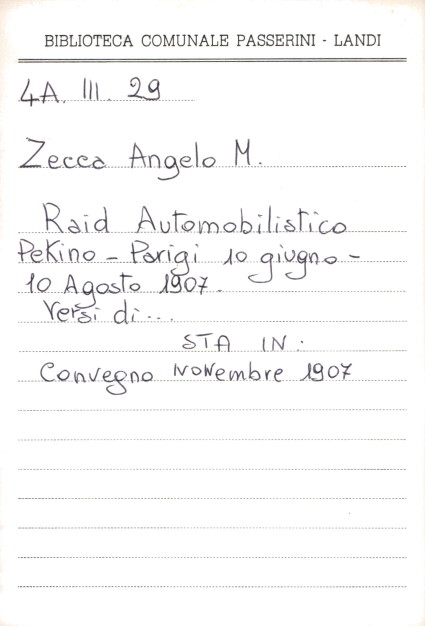 BIBLIOTECA COMUNALE PASSERINI - LANDI
4A. III. 29
Zecca Angelo M.
Raid Automobilistico
Pekino - Parigi 10 giugno -
10 Agosto 1907.
Versi di...
STA IN:
Convegno NoNembre 1907